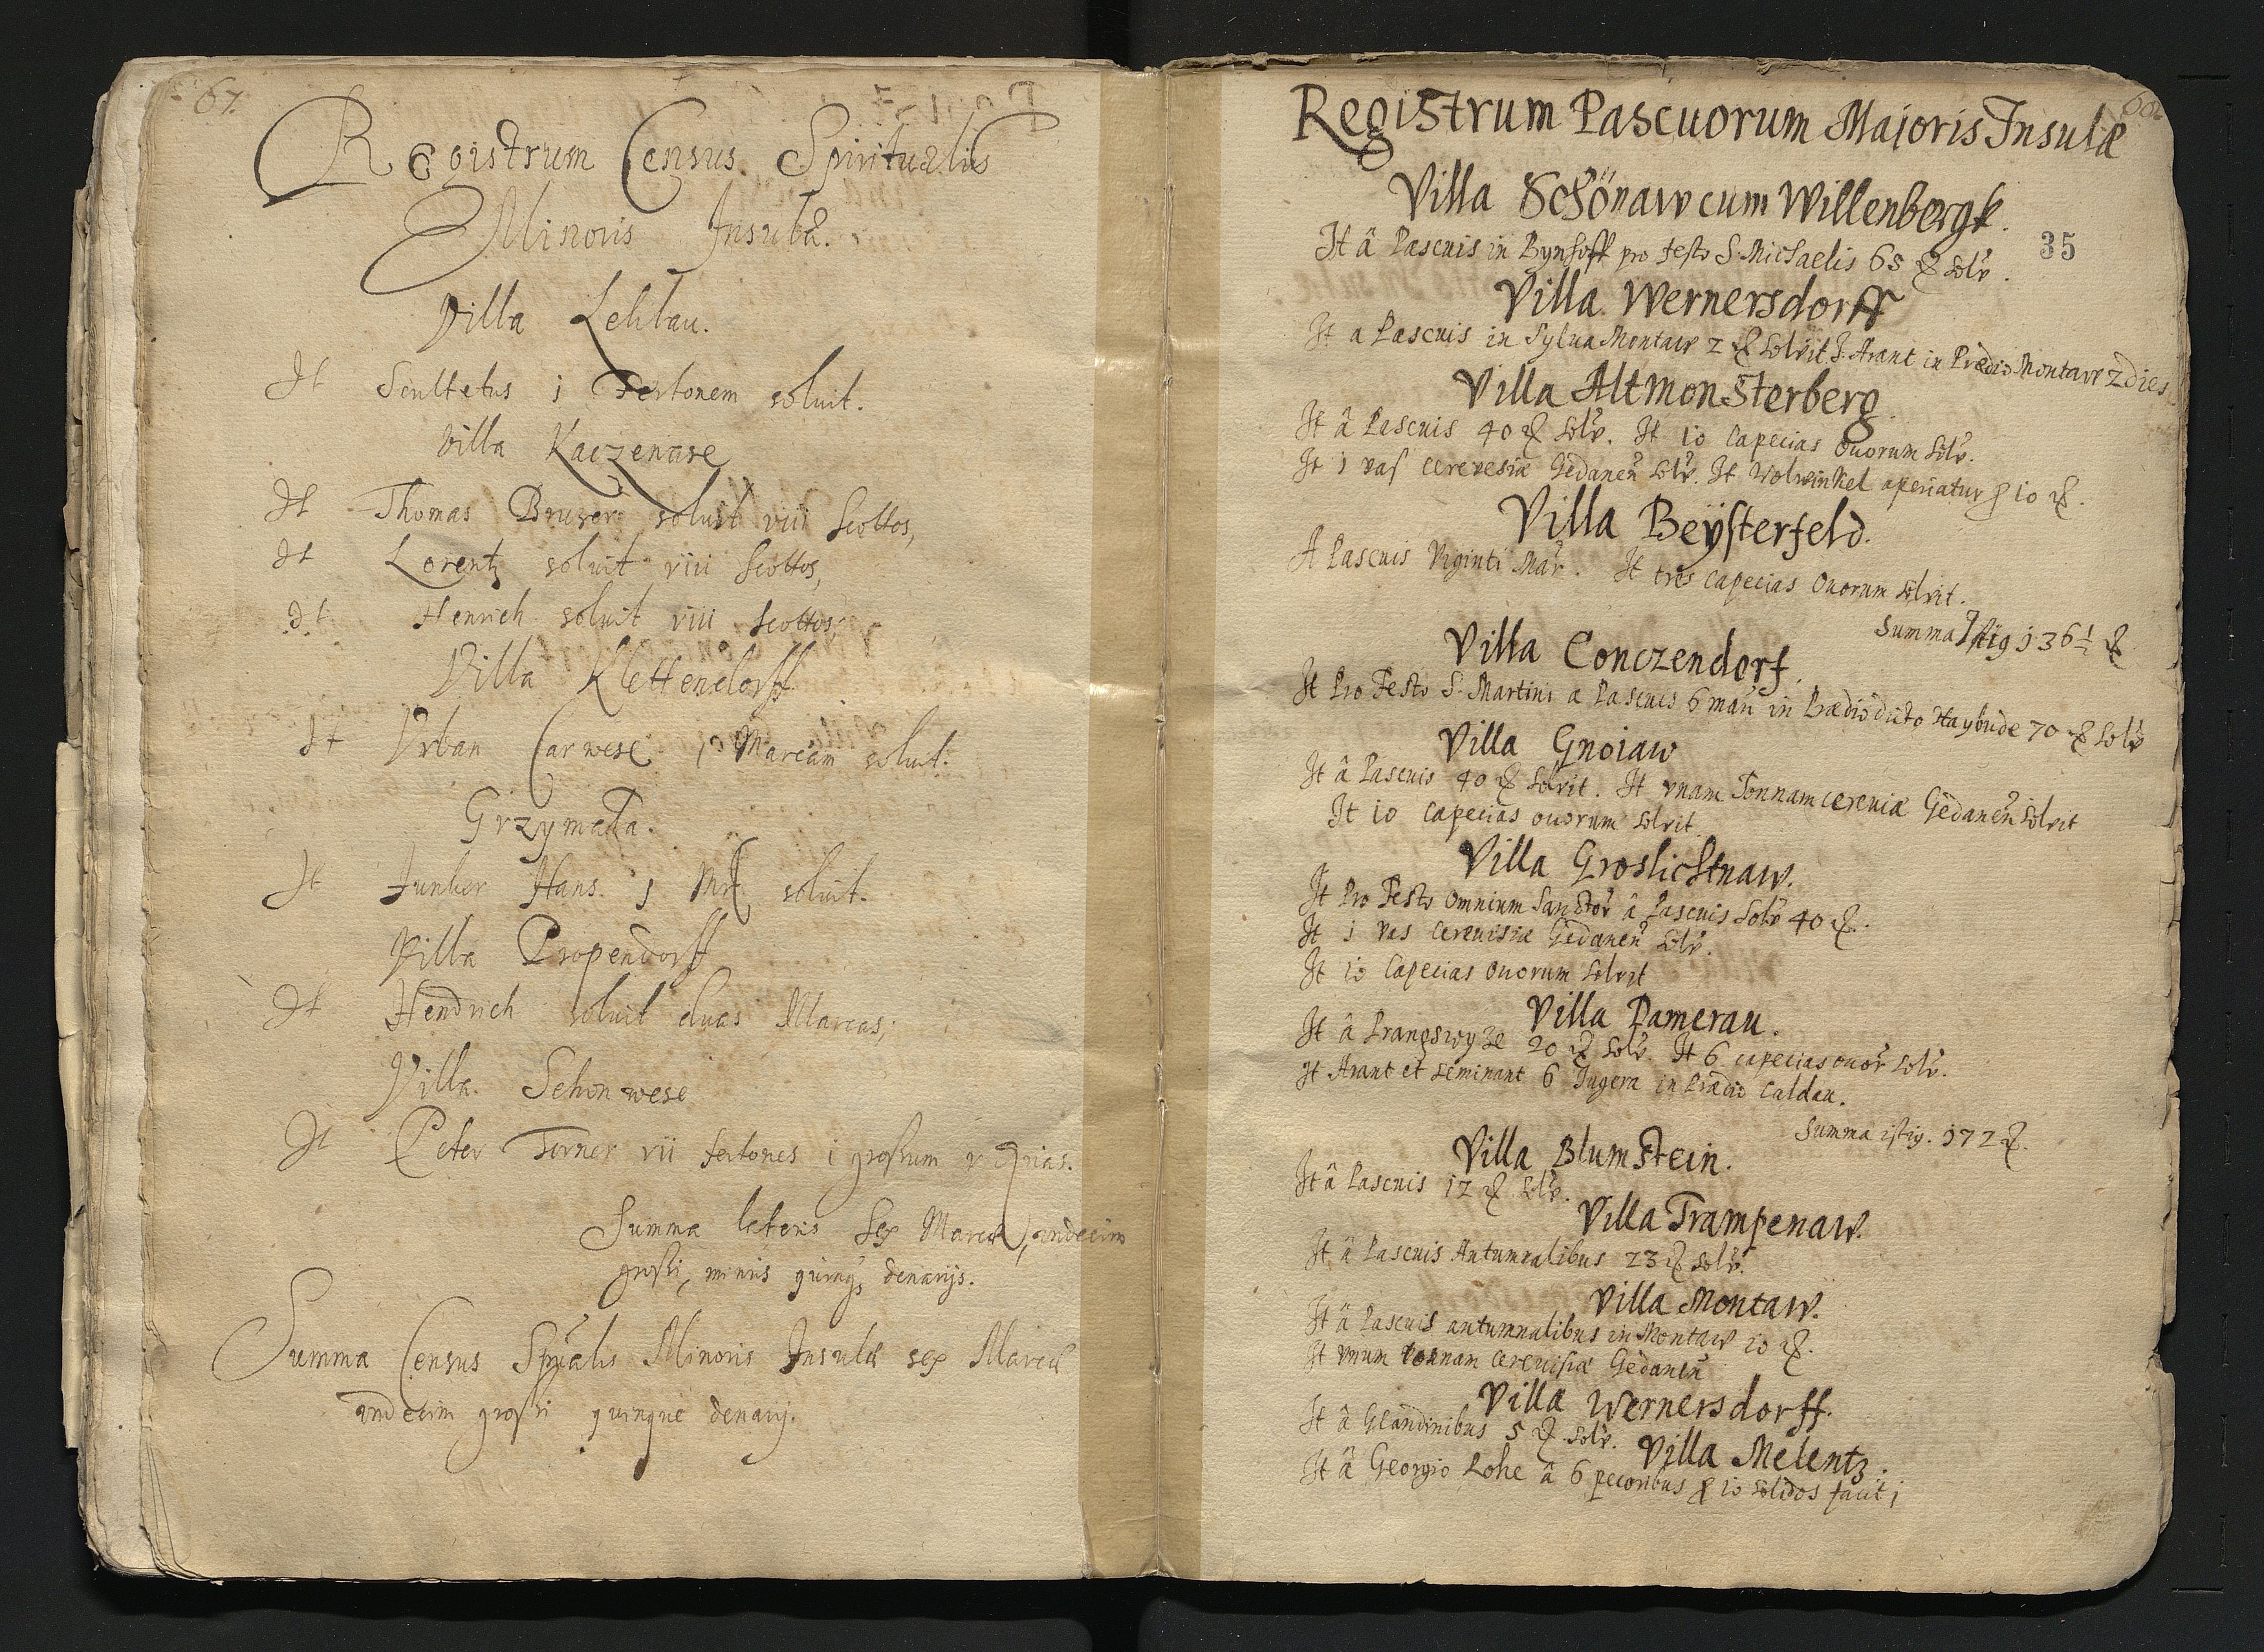 67.
Registrum Census Spiritualis
Minoris Insulæ.
Villa Lehlau.
It Scultetus j Fertonem soluit.
Villa Kaczenase
It Thomas Bruser soluit viii Scottos,
It Lorentz soluit viii Scottos,
It Henrich soluit viii scottos,
Villa Klettendorff
It Vrban Carwese j Marcam soluit.
Grzymała.
It Junker Hans j Mr soluit.
Villa Propendorff
It Hendrich soluit duas Marcas;
Villa Schonwese
It Peter Torner vii fertones i grossum
Summa lateris sex Marcæ, vndecim
grossi, minus quinqȝ denarijs.
Summa Census Sp̃ualis Minoris Insulæ sex Marcæ
vndecim grossi quinque denarij.
68.
Registrum Pascuorum Maioris Insulæ
Villa Schönaw cum Willenbergk.
It â Pascuis in Bynhoff pro festo S. Michaelis 65 solv.
35
Villa Wernersdorff
It a Pascuis in Sylua Montaw 2 solvit J. Arant in Prædio Montaw 2 dies
Villa Altmonsterberg.
It â Pascuis 40 solv. It 10 Capecias Ouorum solv.
It j vas cerevesiæ Gedanen solv. It Wolwinkel aperiatur 10
Villa Beÿsterfeld.
A Pascuis Viginti Mar. It tres Capecias Ouorum solvit.
Summa 136½
Villa Conczendorf.
It Pro Festo S. Martini a Pascuis 6 mar in Prædio dicto Haybude 70 solv
Villa Gnoiaw
It â Pascuis 40 solvit. It vnam Tonnam cereviæ Gedanen solvit
It 10 capecias ouorum solvit.
Villa Groslichtnaw.
It Pro Festo Omnium Sanctor â Pascuis solv 40
It j vas cerevisiæ Gedanen solv.
It 10 Capecias Ouorum solvit
Villa Pamerau.
It â Prangswyze 20 solv. It 6 capecias ouor solv.
It Arant et seminant 6 Jugera in Prædio Caldau.
Summa istiq. 172
Villa Blumstein.
It â Pascuis 12 solv.
Villa Trampenaw.
It â Pascuis Autumnalibus 23 solv.
Villa Montaw.
It â Pascuis autumnalibus in Montaw 10
It vnum tonnam cerevisiæ Gedanen
Villa Wernersdorff.
It â Glandinibus 5 solv.
Villa Melentz.
It â Georgio Lohe â 6 pecoribus 10 solidos facit j